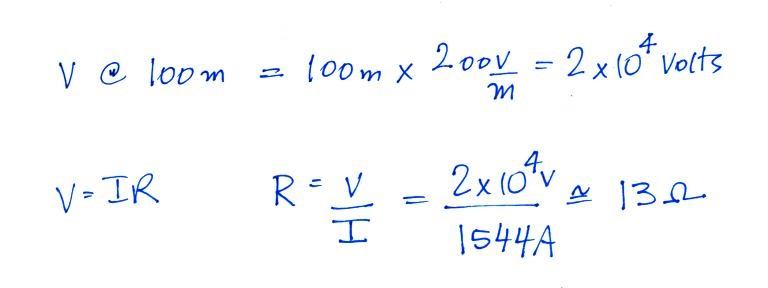 V @ 100m = 100m x 200V/m = 2 x 10⁴ Volts
V = IR R = V/I = 2x10⁴V/1544A ≃ 13Ω